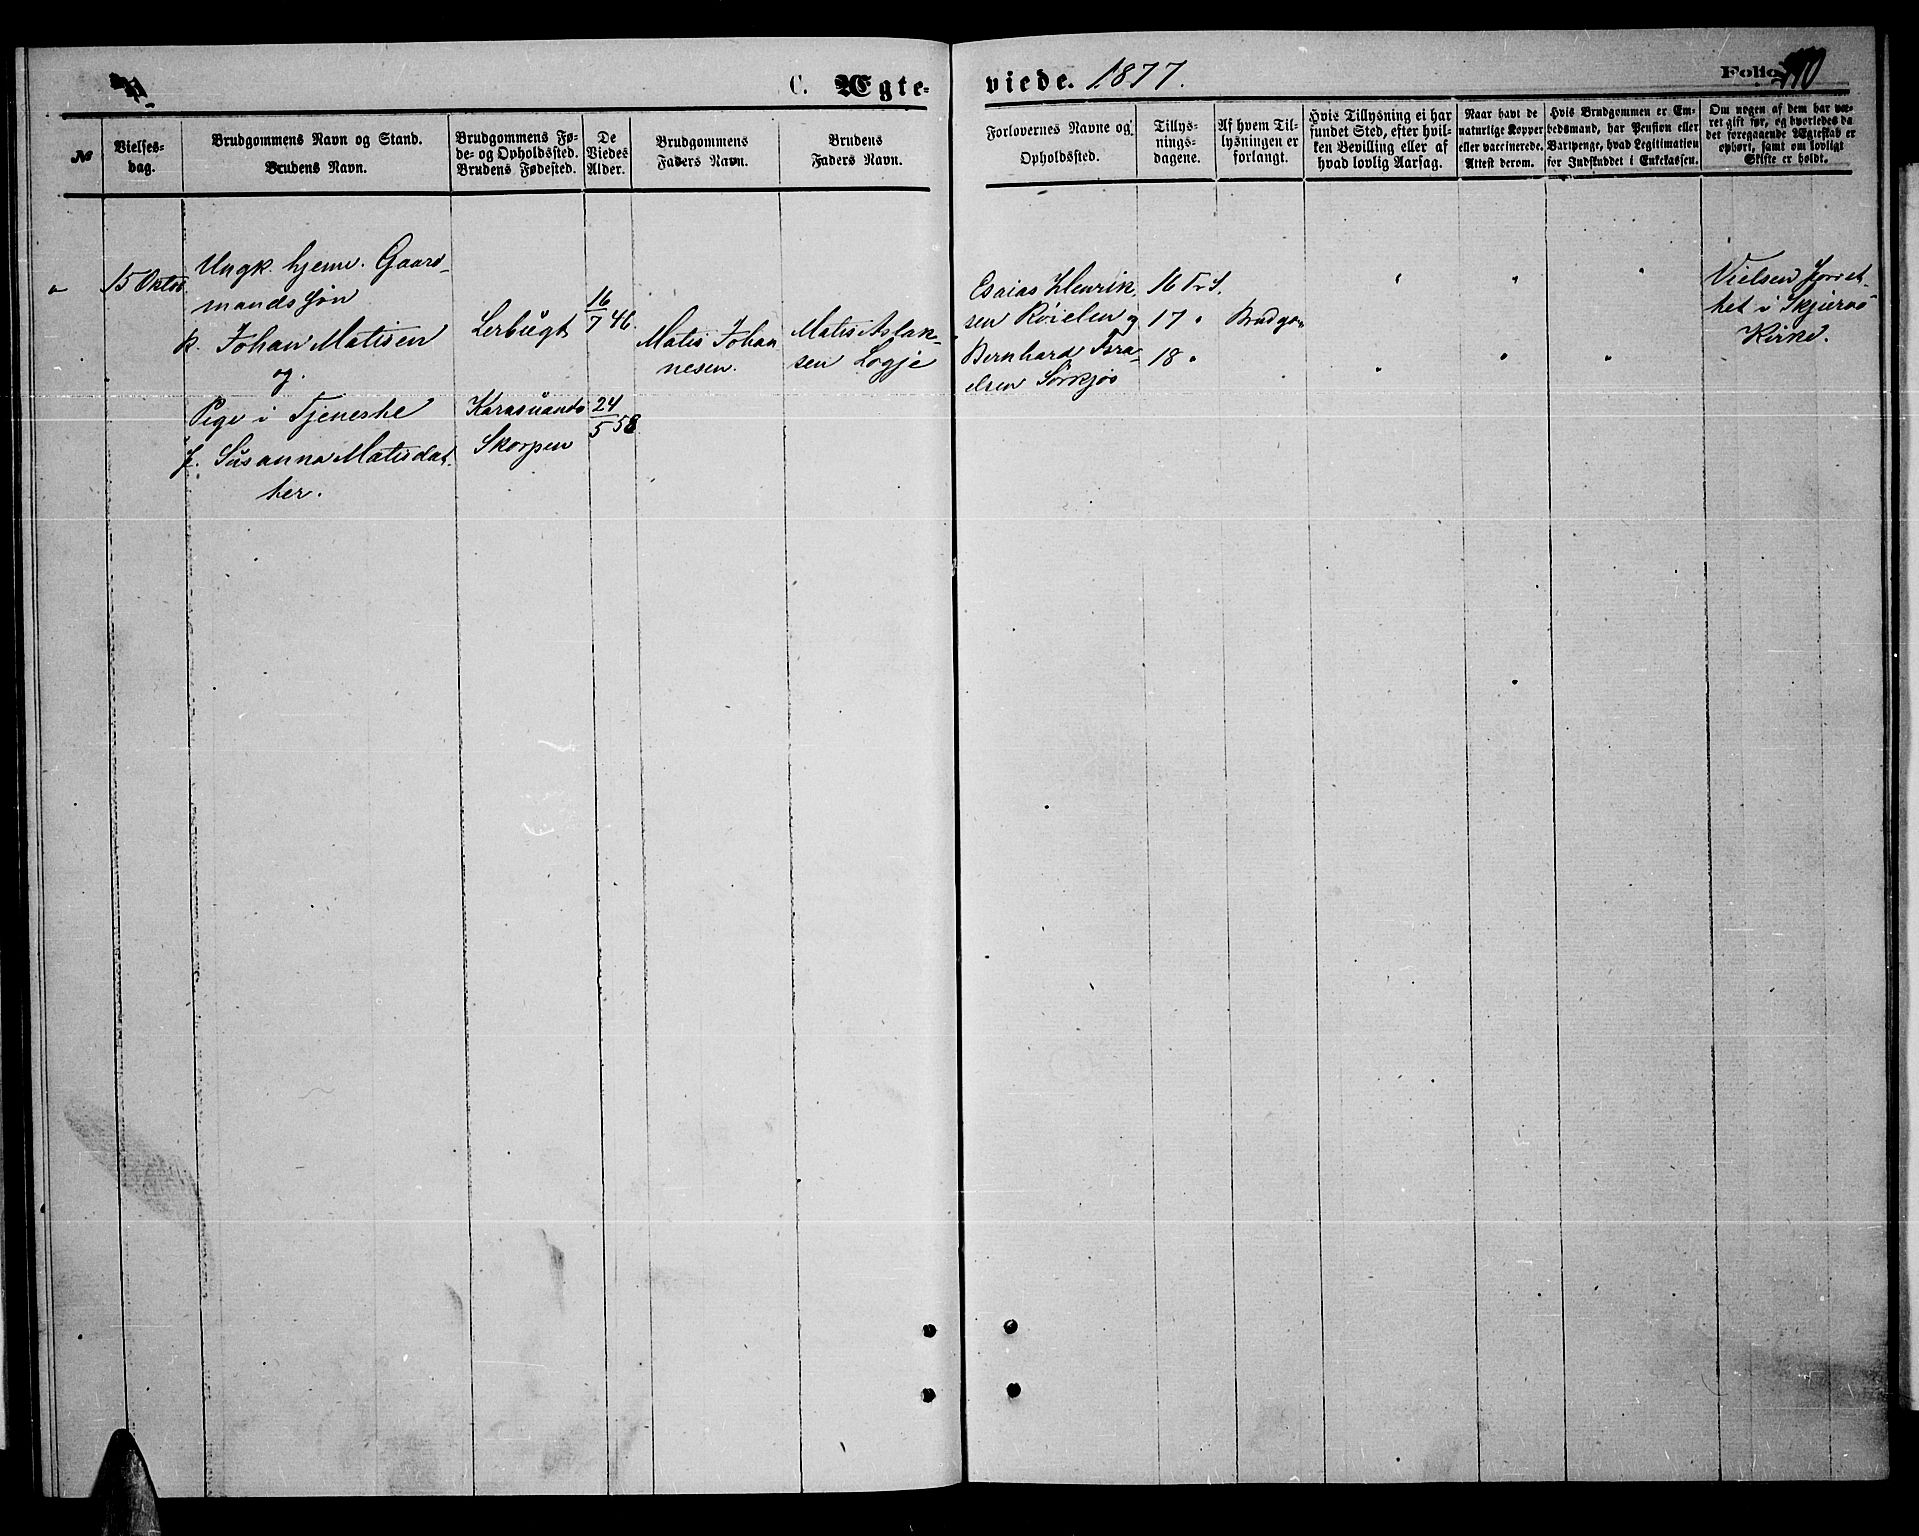 C. Ægte-
viede. 1877.
Folio
No
Vielses-
dag.
Brudgommens Navn og Stand.
Brudens Navn.
Brudgommens Fø-
de- og Opholdssted.
Brudens Fødested.
De
Viedes
Alder.
Brudgommens
Faders Navn.
Brudens
Faders Navn.
Forlovernes Navne og
Opholdssted.
Tillys-
nings-
dagene.
Af hvem Til-
lysningen er
forlangt.
Hvis Tillysning ei har
fundet Sted, efter hvil-
ken Bevilling eller af
hvad lovlig Aarsag.
Naar havt de
naturlige Kopper
eller vaccinerede.
Attest derom.
Hvis Brudgommen er Em-
bedsmand, har Pension eller
Vartpenge, hvad Legitimation
for Indskuddet i Enkekassen.
Om nogen af dem har væ-
ret gift før, og hvorledes da
det foregaaende Ægteskab er
ophørt, samt om lovligt
Skifte er holdt.
15 Oktob
Ungk. hjemv. Gaard-
mandssøn
k. Johan Matisen
og
Pige i Tjeneste
f. Susanna Matisdat-
ter.
Lerbugt
Karasuando
Skorpen
16/7 46
24/5 58
Matis Johan
nesen.
Matis Aslak-
sen Logje
Esaias Henrik
sen Röielen og
Bernhard Isra-
elsen Sörkjos
16 Tr. S.
17 "
18 "
Brudgo
Vielsen forret-
tet i Skjervö
Kirke.